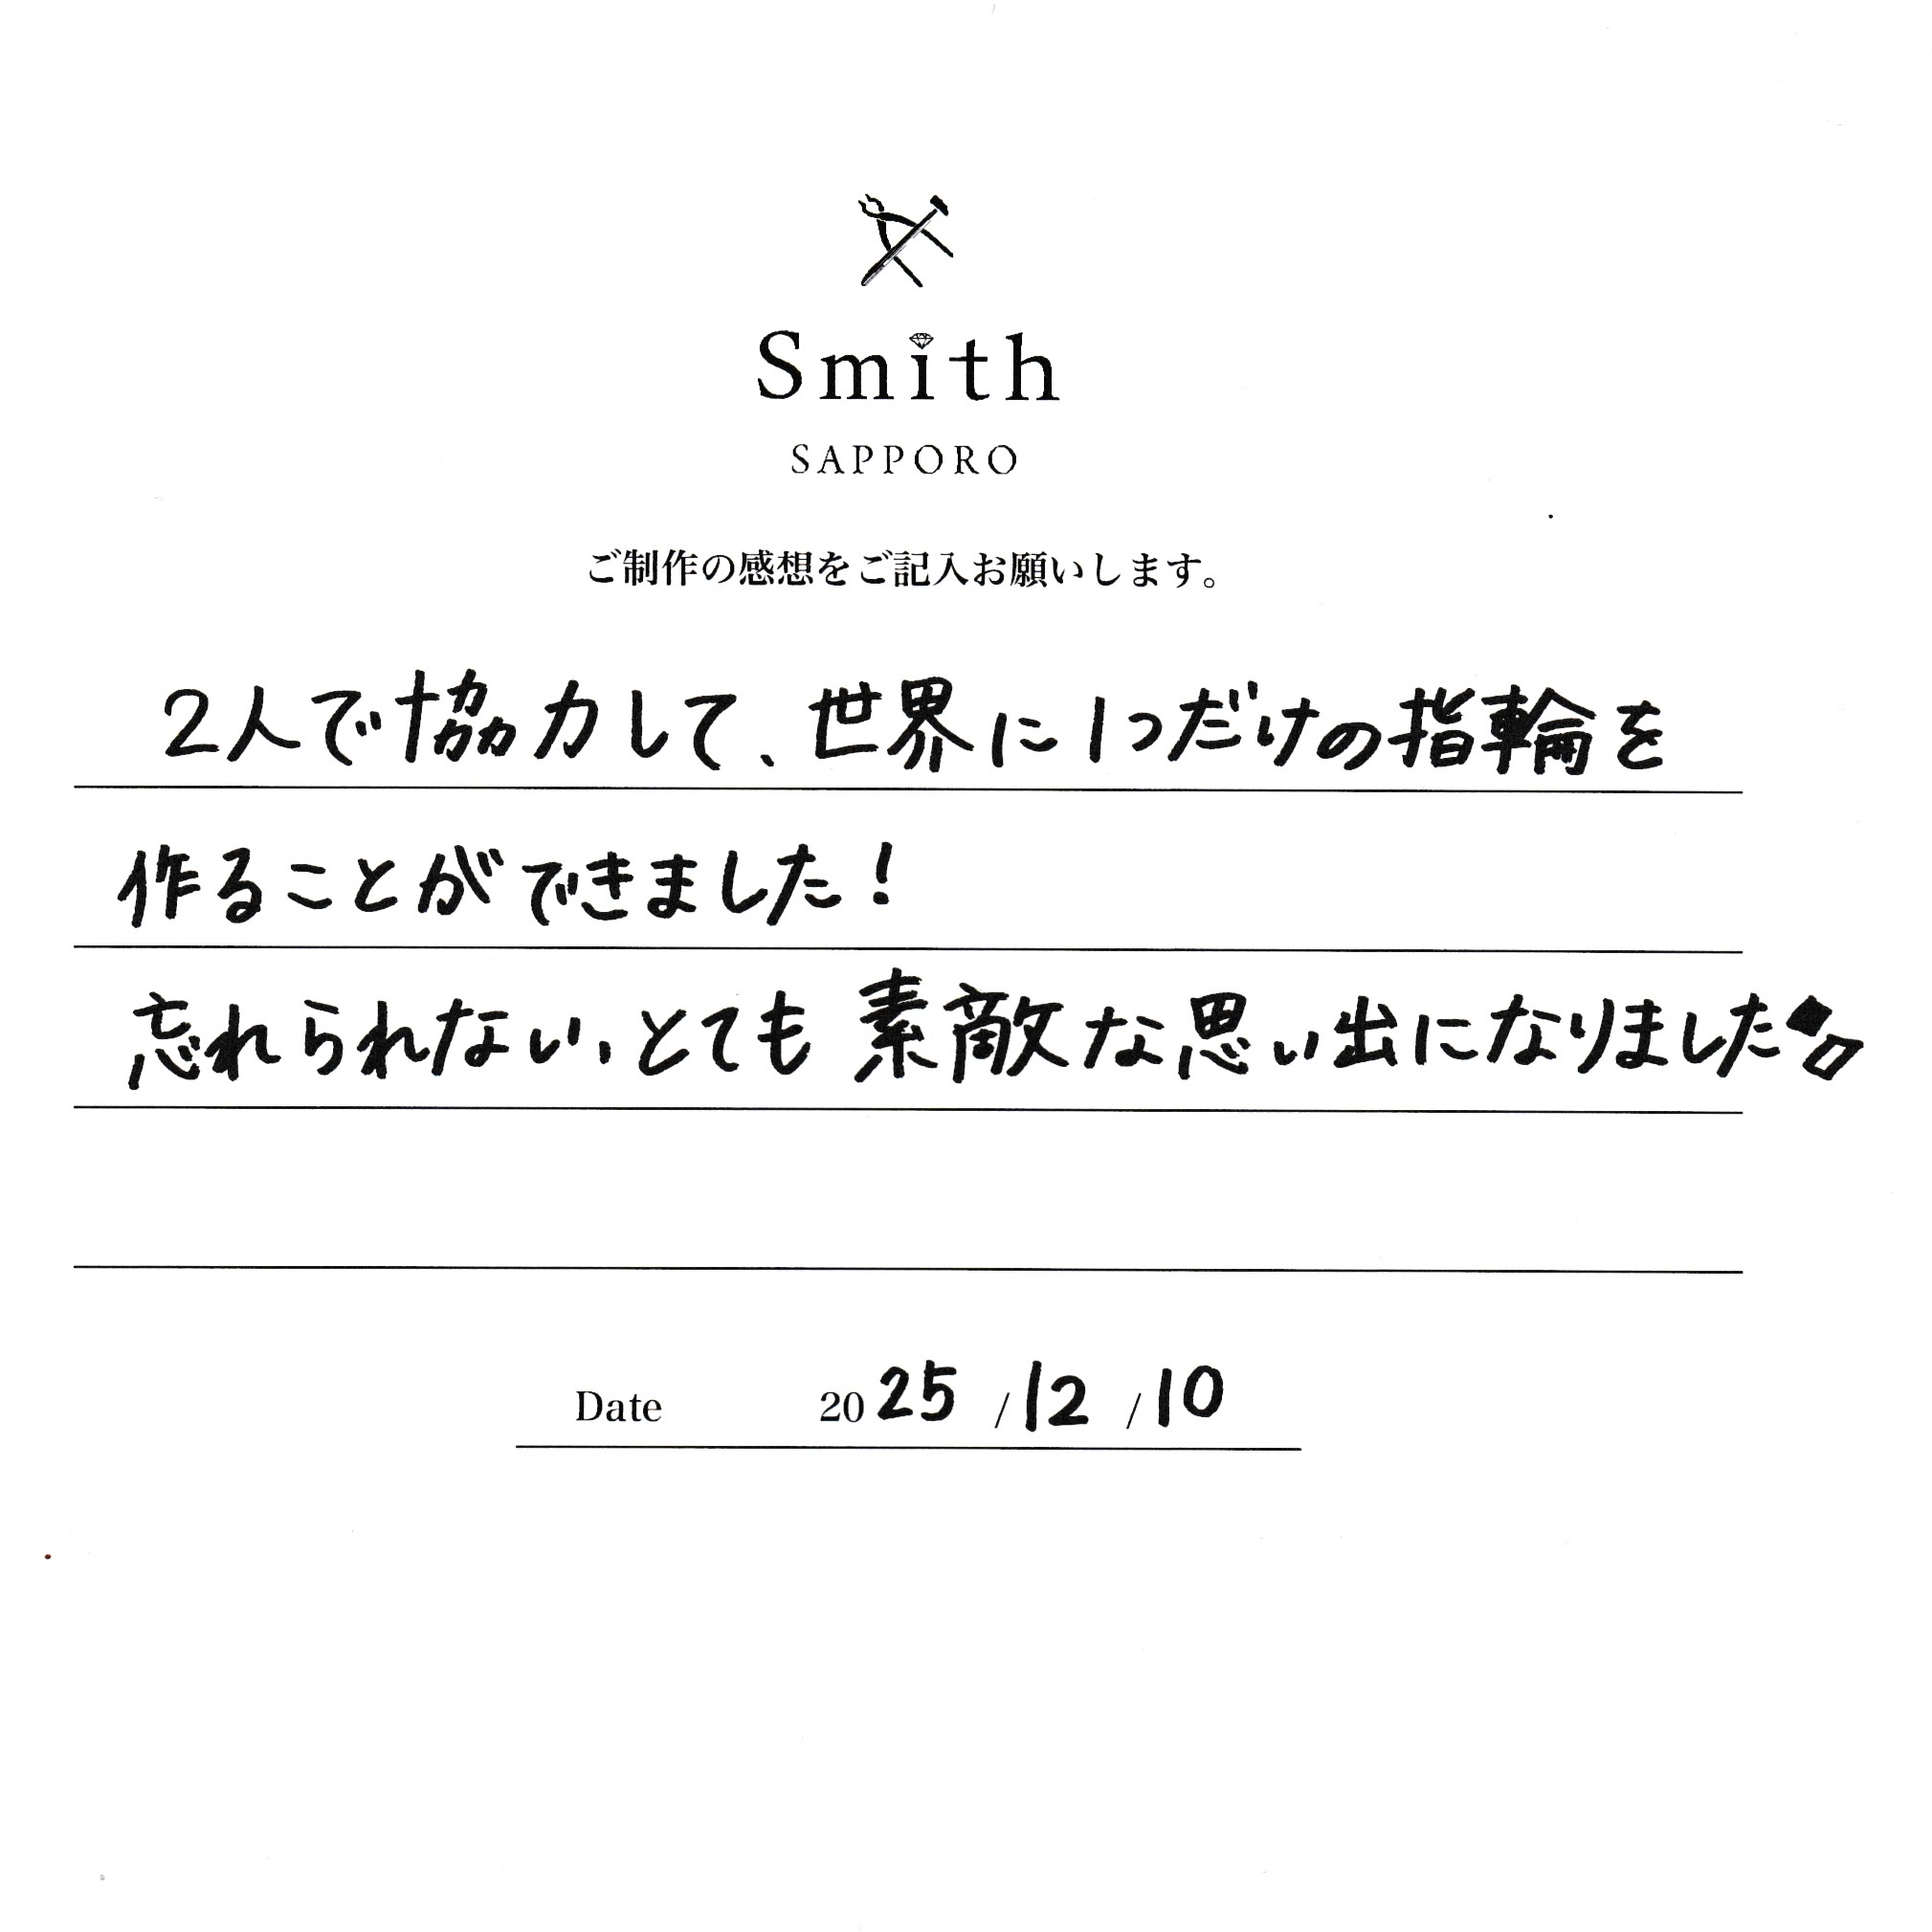 Smith
SAPPORO
ご制作の感想をご記入お願いします。
2人で協力して、世界に1つだけの指輪を
作ることができました!
忘れられない、とても素敵な思い出になりました
Date 2025/12/10